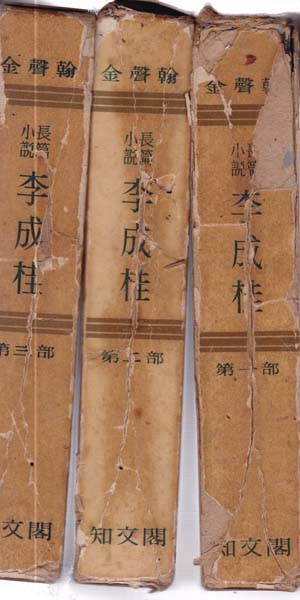 金聲翰
長篇
小說
李成桂
第三部
文閣
金聲翰
長篇
小說
李成桂
第二部
知文閣
金聲翰
長篇
小說
李成桂
第一部
知文閣